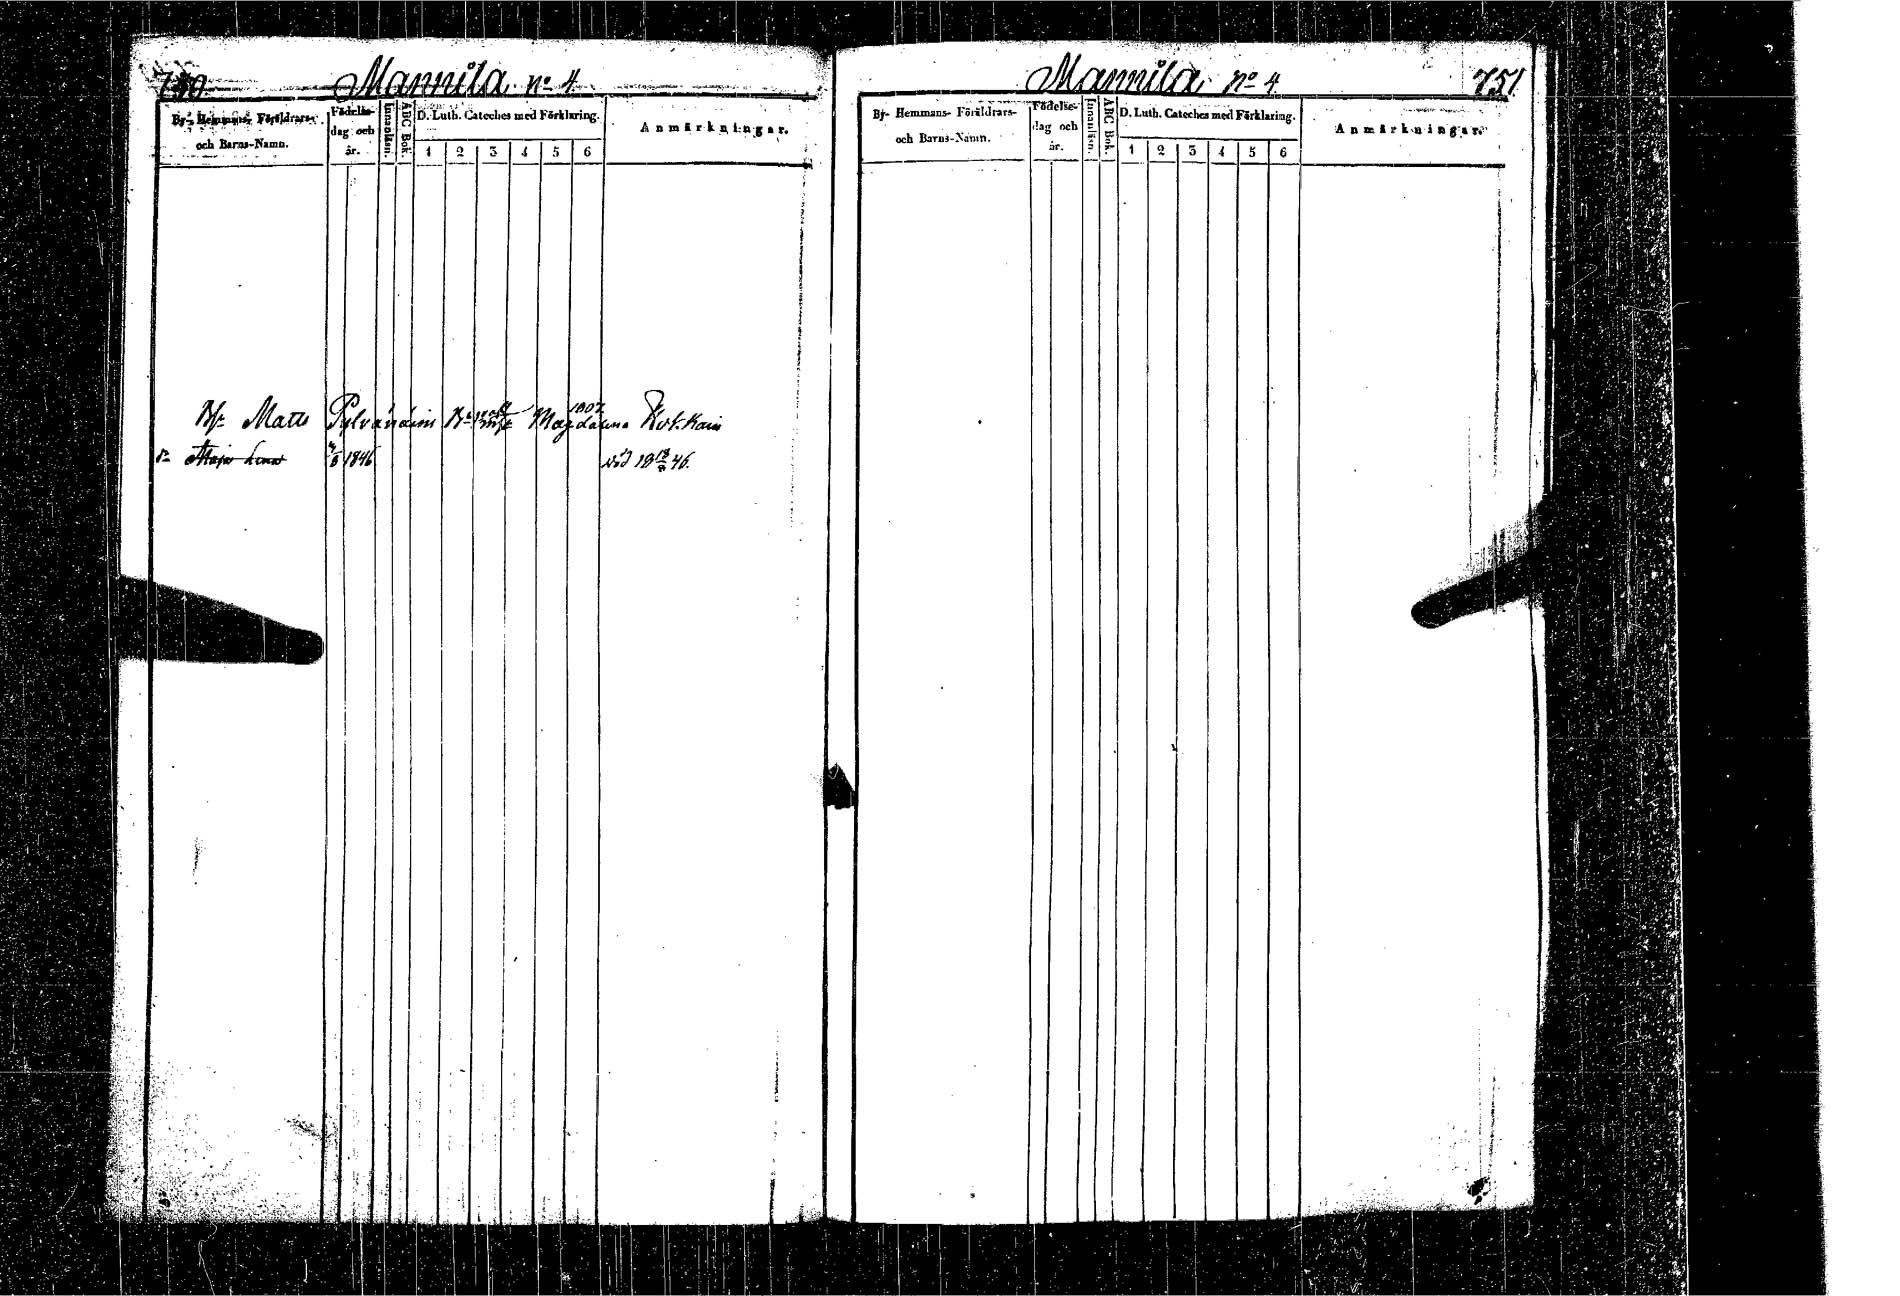 750 Mannila No 4
By- Hemmans- Föräldrars- och Barns-Namn.
Födelse- dag och år.
Innanläsn.
ABC Bok.
D. Luth. Cateches med Förklaring.
1 2 3 4 5 6
Anmärkningar.
Matts Pylvänäini Magdalena Kokkain
1807
Maja Lena 1846 död 18 46.
Mannila No 4 751
By- Hemmans- Föräldrars- och Barns-Namn.
Födelse- dag och år.
Innanläsn.
ABC Bok.
D. Luth. Cateches med Förklaring.
1 2 3 4 5 6
Anmärkningar.